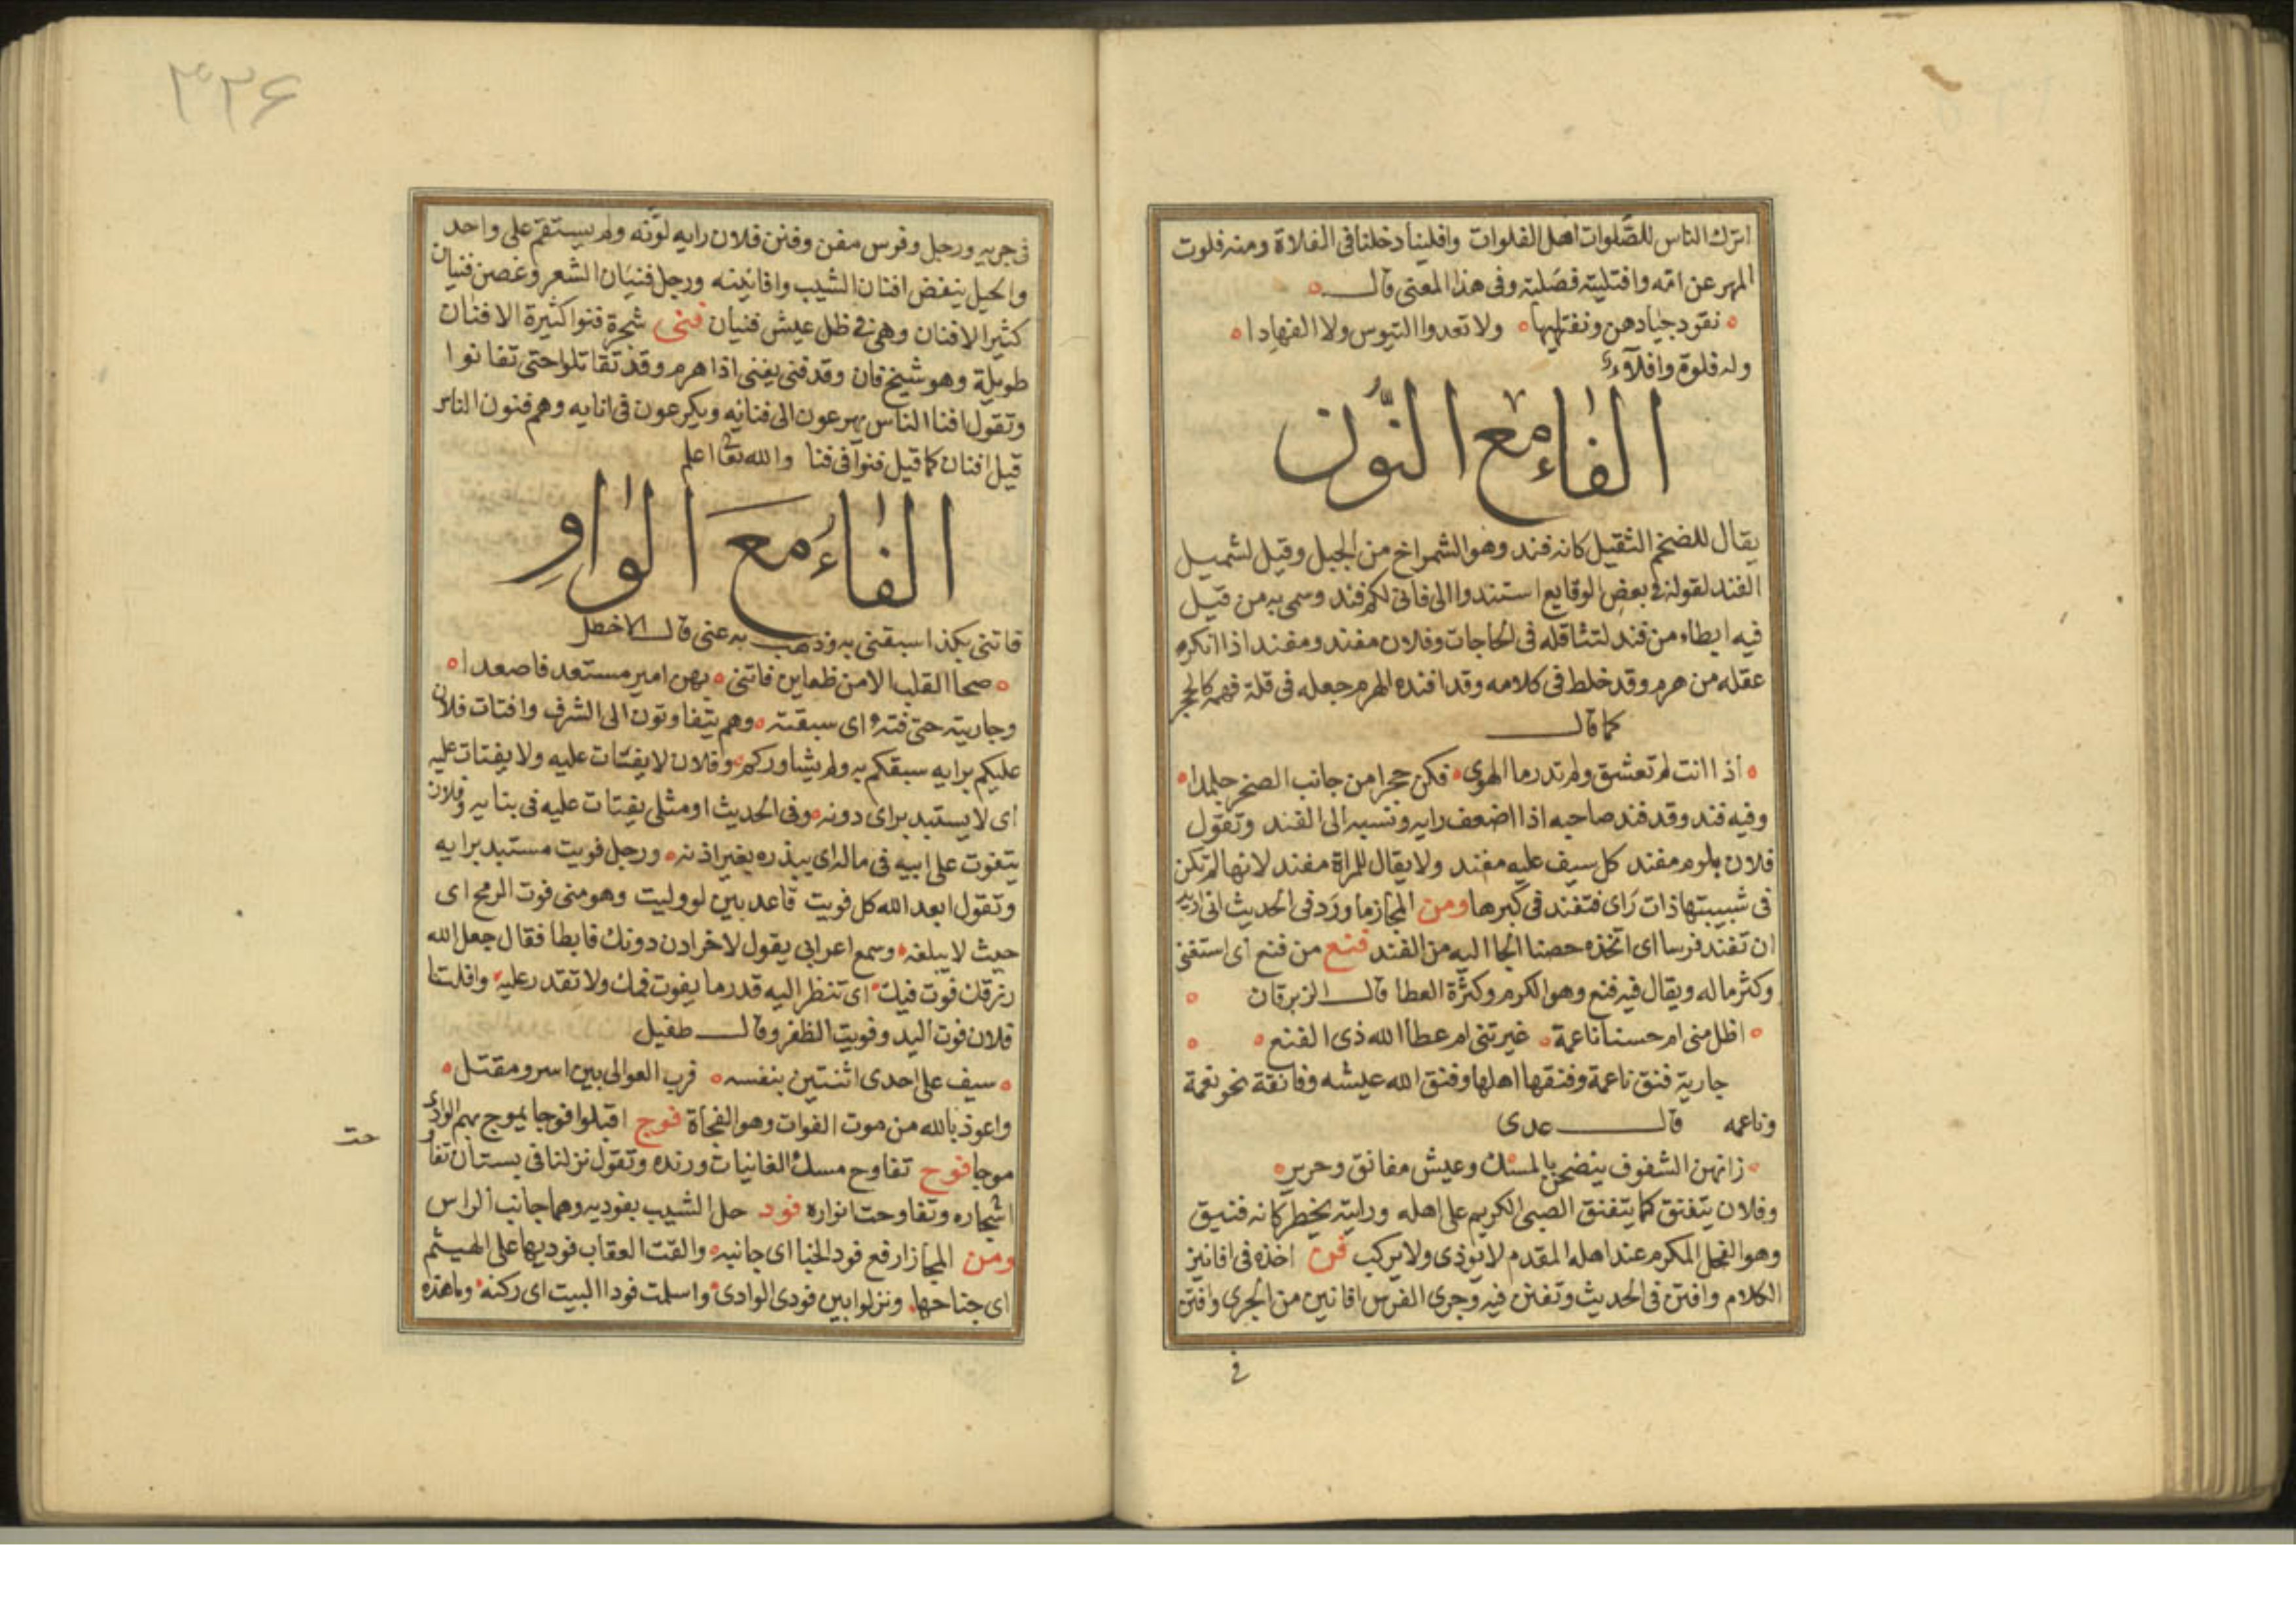 اترك الناس للصّلوات اهل الفلوات وافلينا دخلنا فى الفلاة ومنه فلوت
المهر عن امّه وافتليته فصلته وفى هذا المعنى قال
نقود جيادهن ونفتليها ولا تعدوا التيوس ولا القهادا
وله فلوة وافلآء
الفاء مع النّون
يقال للضخم الثقيل كانه فند وهو الشمراخ من الجبل وقيل لشميل
الفند لقوله فى بعض الوقايع استندوا الى فانى لكم فند وسمى به من قيل
فيه ابطاء من فند لتثاقله فى الحاجات وفلان مفند ومفند اذا انكره
عقله من هرم وقد خلط فى كلامه وقد افنده الهرم جعله فى قلة فهمه كالحجر
كما قال
اذا انت لم تعشق ولم تدر ما الهوى فكن حجرا من جانب الصخر جلمدا
وفيه فند وقد فند صاحبه اذا اضعف رايه ونسبه الى الفند وتقول
فلان ملوم مفند كل سيف عليه مفند ولا يقال للمراة مفند لانها لم تكن
فى شبيبتها ذات راى فتفند فى كبرها ومن المجاز ما ورد فى الحديث انى اريد
ان تفند فرسا اى اتخذه حصنا الجا اليه من الفند فنع من فنع اى استغنى
وكثر ماله ويقال فيه فنع وهو الكرم وكثرة العطا قال الزبرقان
اظل منى ام حسنا ناعمة غيرتنى ام عطا الله ذى الفنع
جارية فنق ناعمة وفنقها اهلها وفنق الله عيشه وفانقة نحو نعمة
وناعمه قال عدى
زانهن الشفوف ينضحن بالمسك وعيش مفانق وحرير
وفلان يتفنق كما يتفنق الصبى الكريم على اهله ورايته يخطر كانه فنيق
وهو الفحل المكرم عند اهله المقدم لا يوذى ولا يركب فن اخذه فى افانين
الكلام وافتن فى الحديث وتفنن فيه وجرى الفرس افانين من الجرى وافتن
فى
٣٢۶
فى جريه ورجل وفرس مفن وفنن فلان رايه لوّنه ولم يستقم على واحد
والخيل ينفض افنان الشيب وافانينه ورجل فنيان الشعر وغصن فنيان
كثير الافنان وهى فى ظل عيش فنيان فنى شجرة فنوا كثيرة الافنان
طويلة وهو شيخ فان وقد فنى يفنى اذا هرم وقد تقاتلوا حتى تفانوا
وتقول افنا الناس يهرعون الى فنائه ويكرعون فى انايه وهم فنون الناس
قيل افنان كما قيل فنوآ فى فنا والله تعالى اعلم
الفاء مع الواو
فاتنى بكذا سبقنى به وذهب به عنى قال الاخطل
صحا القلب الا من ظعاين فاتنى بهن امير مستعد فاصعدا
وجاريته حتى فته اى سبقته وهم يتفاوتون الى الشرف وافتات فلان
عليكم برايه سبقكم به ولم يشاوركم وفلان لا يفتات عليه ولا يفتات عليه
اى لا يستبد براى دونه وفى الحديث اومثلى يفتات عليه فى بنايه وفلان
يتفوت على ابيه فى ماله اى يبذره بغير اذنه ورجل فويت مستبد برايه
وتقول ابعد الله كل فويت قاعد بين لو وليت وهو منى فوت الرمح اى
حيث لا يبلغه وسمع اعرابى يقول لاخر ادن دونك فابطا فقال جعل الله
رزقك فوت فيك اى تنظر اليه قدر ما يفوت فمك ولا تقدر عليه وافلتنا
فلان فوت اليد وفويت الظفر وقال طفيل
سيف على احدى اثنتين بنفسه قرب العوالى بين اسر ومقتل
واعوذ بالله من موت الفوات وهو الفجاة فوج اقبلوا فوجا يموج بهم الوادى
موجا فوح تفاوح مسك الغانيات ورنده وتقول نزلنا فى بستان تفاو
حت
اشجاره وتفاوحت انواره فود حل الشيب بفوديه وهما جانبا الراس
ومن المجاز ارفع فود الخبا اى جانبه والقت العقاب فوديها على الهيثم
اى جناحها ونزلوا بين فودى الوادى واسلمت فودا البيت اى ركنه وما هذه